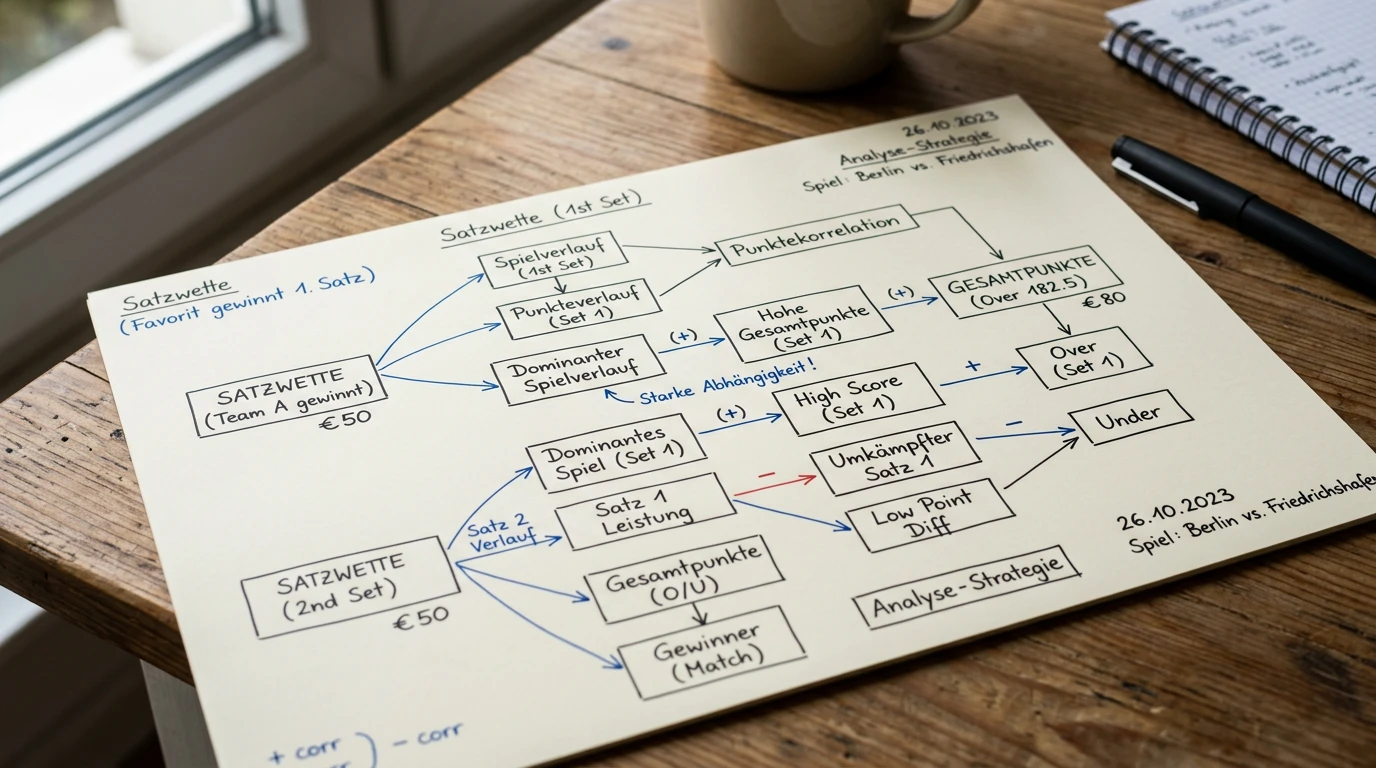 26.10.2023
Analyse-Strategie
Spiel: Berlin vs. Friedrichshafen
Satzwette (1st Set)
Satzwette
(Favorit gewinnt 1. Satz)
Spielverlauf
(1st Set)
Punktekorrelation
Punkteverlauf
(Set 1)
GESAMTPUNKTE
(Over 182.5)
€80
Dominanter
Spielverlauf
(+)
Hohe
Gesamtpunkte
(Set 1)
(+)
Over
(Set 1)
SATZWETTE
(Team A gewinnt)
€50
Starke Abhängigkeit!
Dominantes
Spiel (Set 1)
(+)
High Score
(Set 1)
+
Under
Satz 1
Leistung
–
Umkämpfter
Satz 1
–
Low Point
Diff
Satz 2
Verlauf
SATZWETTE
(2nd Set)
€50
Gesamtpunkte
(O/U)
Gewinner
(Match)
Analyse-Strategie
26.10.2023
Spiel: Berlin vs. Friedrichshafen
+ corr ) – corr